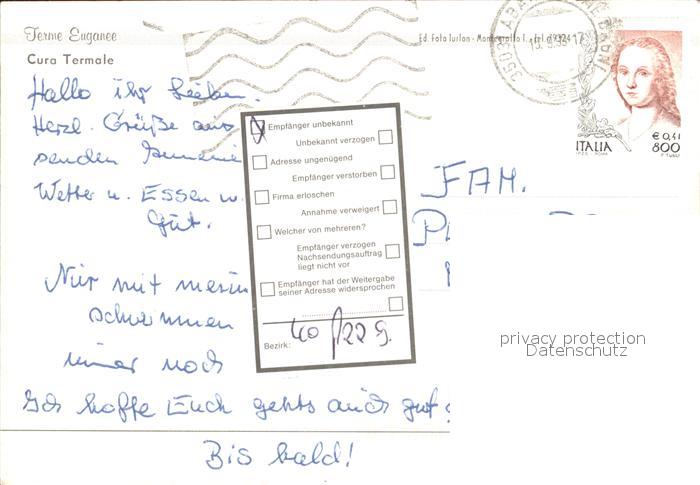 Terme Euganee
Cura Termale
Ed. Foto Turlon - Montegrotto T. - tel.
15.9.99-17
ITALIA
€ 0,41
800
I.P.Z.S. - ROMA
Hallo ihr Lieben.
Herzl. Grüße aus
senden
Wetter u. Essen
Gut.
Nur mit
schwimmen
immer noch
Ich hoffe Euch gehts auch gut
Bis bald!
Empfänger unbekannt
Unbekannt verzogen
Adresse ungenügend
Empfänger verstorben
Firma erloschen
Annahme verweigert
Welcher von mehreren?
Empfänger verzogen
Nachsendungsauftrag
liegt nicht vor
Empfänger hat der Weitergabe
seiner Adresse widersprochen
Bezirk: 40/22 9.
FAM.
privacy protection
Datenschutz